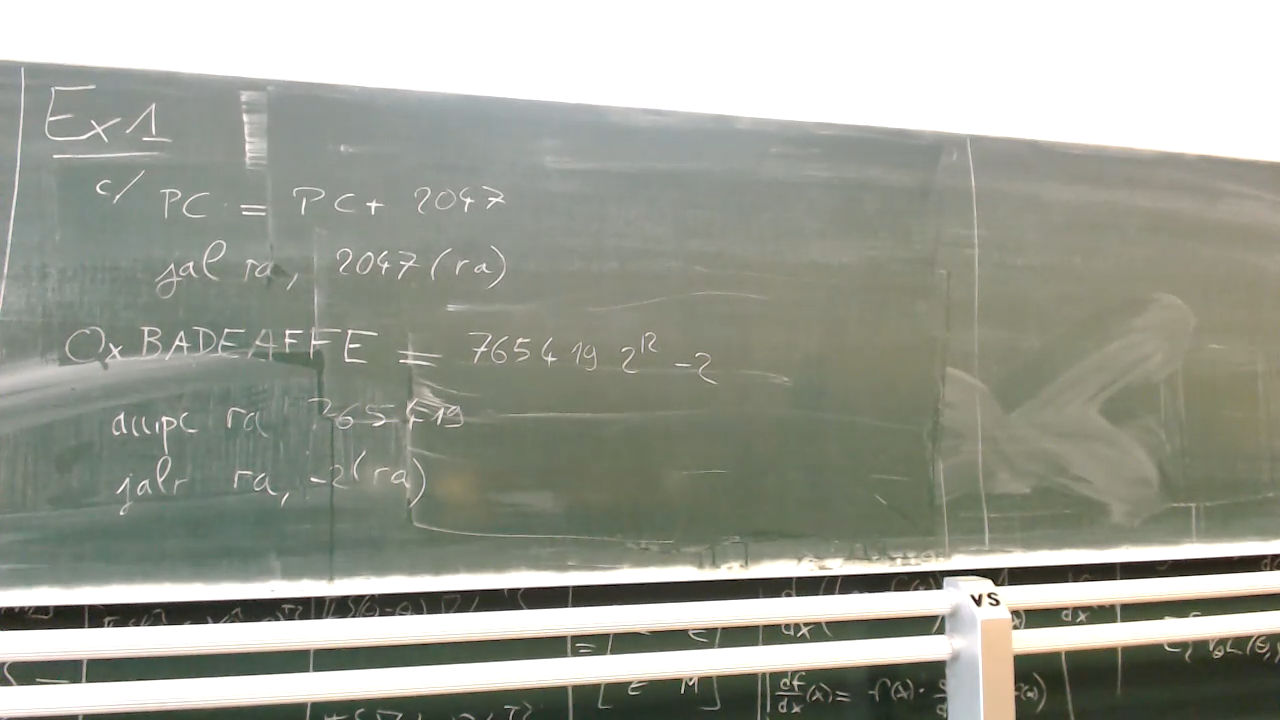 Ex1
c/ PC = PC + 2047
jal ra, 2047(ra)
0xBADEAFFE = 765419 2^12 -2
auipc ra 765419
jalr ra, -2(ra)
vs
dx
dx
df/dx (x) =